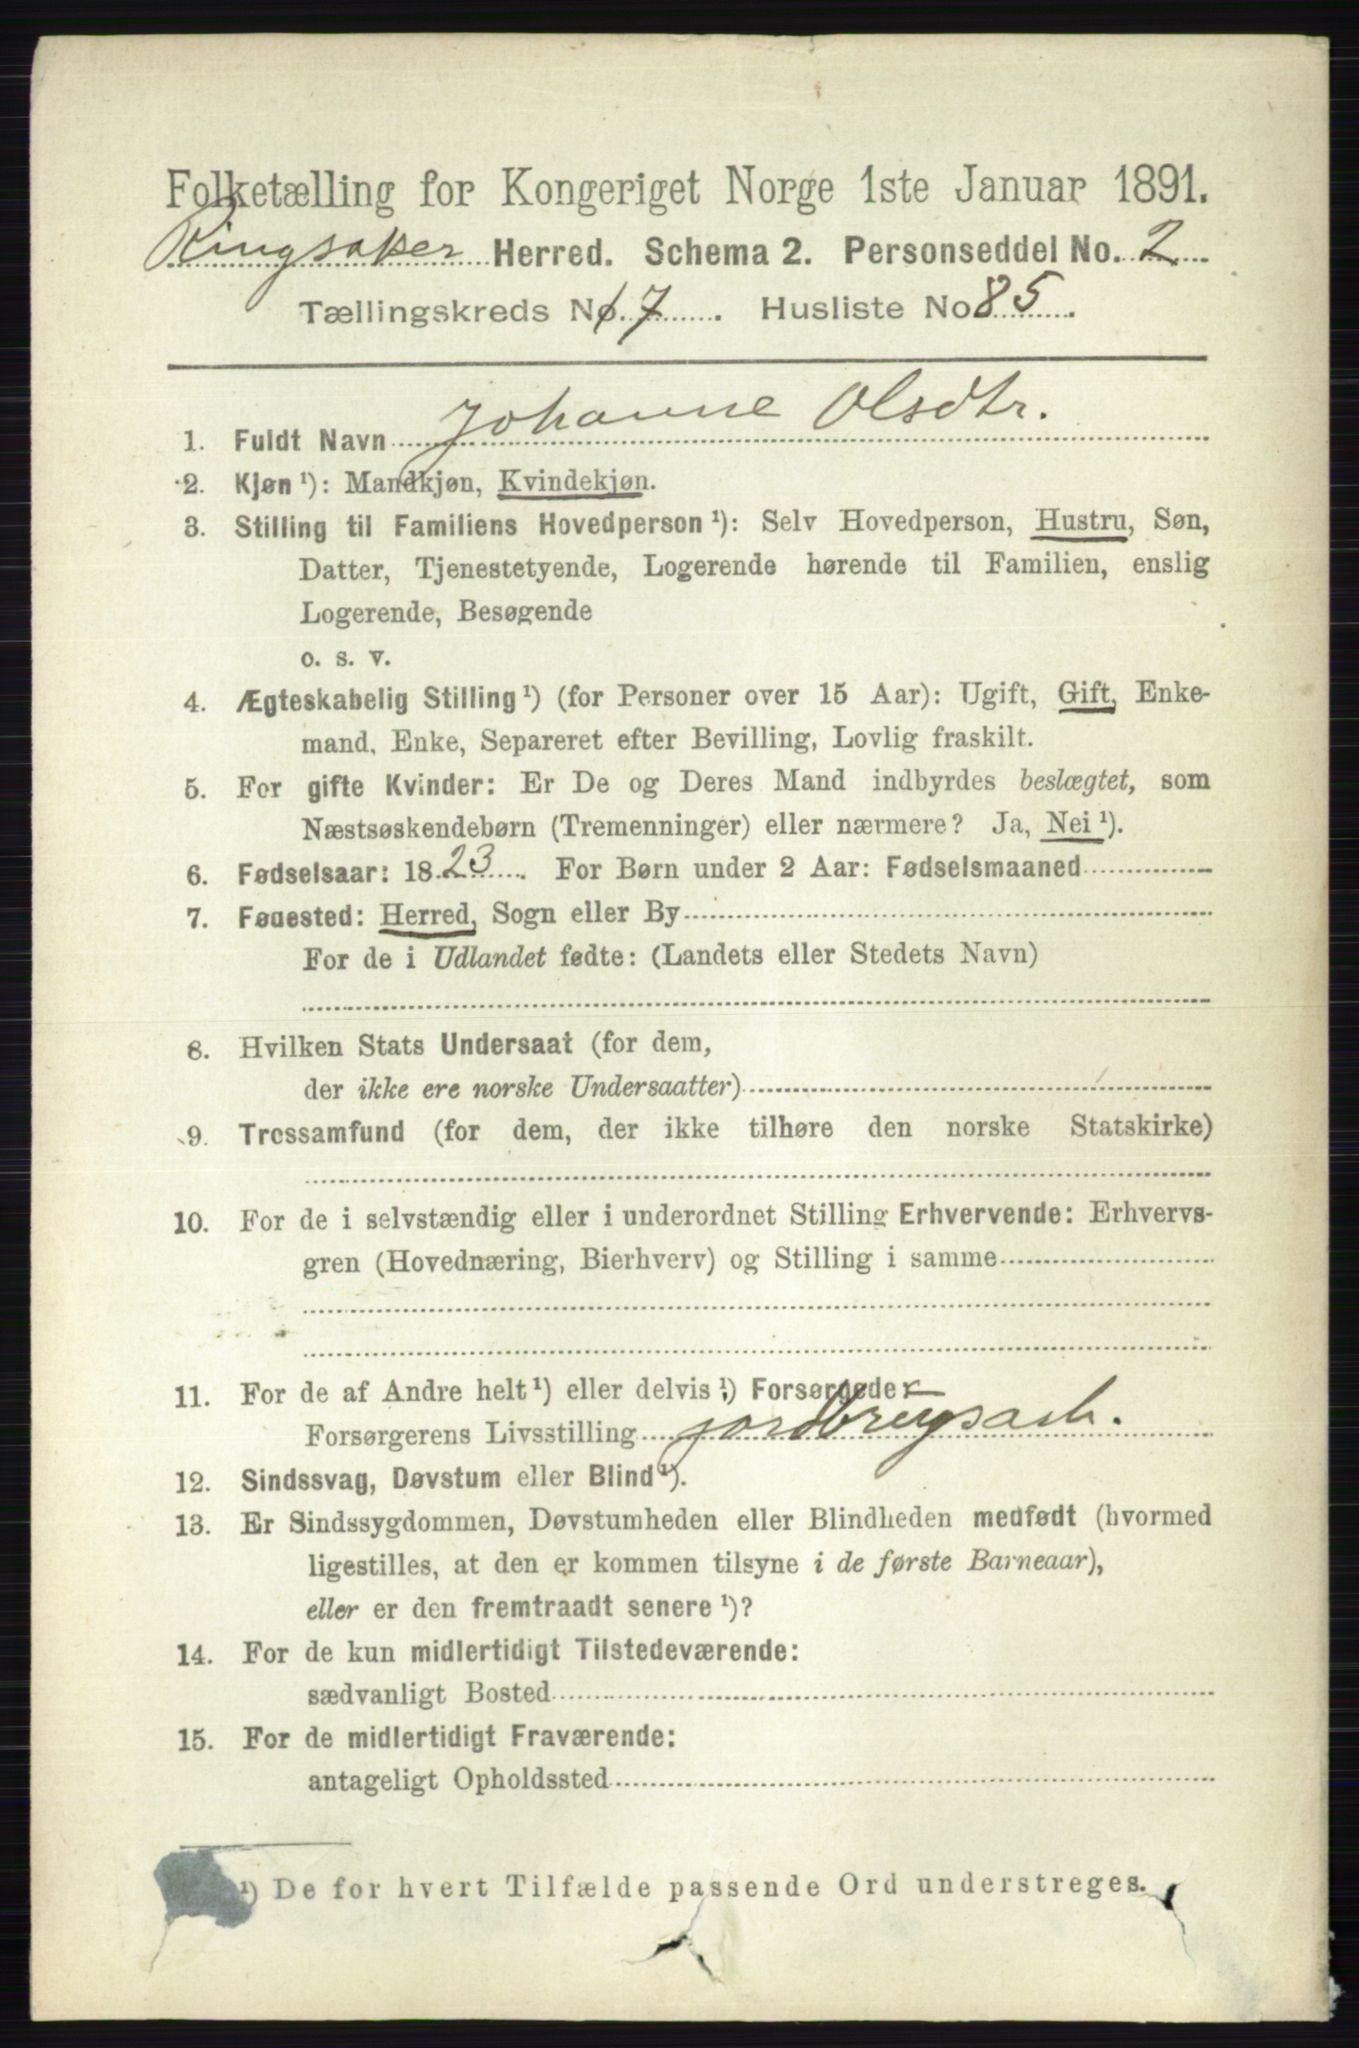 Folketælling for Kongeriget Norge 1ste Januar 1891.
Ringsaker Herred. Schema 2. Personseddel No. 2
Tællingskreds No 17. Husliste No 85.
1. Fuldt Navn Johanne Olsdtr.
2. Kjøn ¹): Mandkjøn, Kvindekjøn.
3. Stilling til Familiens Hovedperson ¹): Selv Hovedperson, Hustru, Søn,
Datter, Tjenestetyende, Logerende hørende til Familien, enslig
Logerende, Besøgende
o. s. v.
4. Ægteskabelig Stilling ¹) (for Personer over 15 Aar): Ugift, Gift, Enke-
mand, Enke, Separeret efter Bevilling, Lovlig fraskilt.
5. For gifte Kvinder: Er De og Deres Mand indbyrdes beslægtet, som
Næstsøskendebørn (Tremenninger) eller nærmere? Ja, Nei ¹).
6. Fødselsaar: 1823. For Børn under 2 Aar: Fødselsmaaned
7. Fødested: Herred, Sogn eller By
For de i Udlandet fødte: (Landets eller Stedets Navn)
8. Hvilken Stats Undersaat (for dem,
der ikke ere norske Undersaatter)
9. Trossamfund (for dem, der ikke tilhøre den norske Statskirke)
10. For de i selvstændig eller i underordnet Stilling Erhvervende: Erhvervs-
gren (Hovednæring, Bierhverv) og Stilling i samme
11. For de af Andre helt ¹) eller delvis ¹) Forsørgede:
Forsørgerens Livsstilling jordbrugsarb.
12. Sindssvag, Døvstum eller Blind ¹).
13. Er Sindssygdommen, Døvstumheden eller Blindheden medfødt (hvormed
ligestilles, at den er kommen tilsyne i de første Barneaar),
eller er den fremtraadt senere ¹)?
14. For de kun midlertidigt Tilstedeværende:
sædvanligt Bosted
15. For de midlertidigt Fraværende:
antageligt Opholdssted
¹) De for hvert Tilfælde passende Ord understreges.